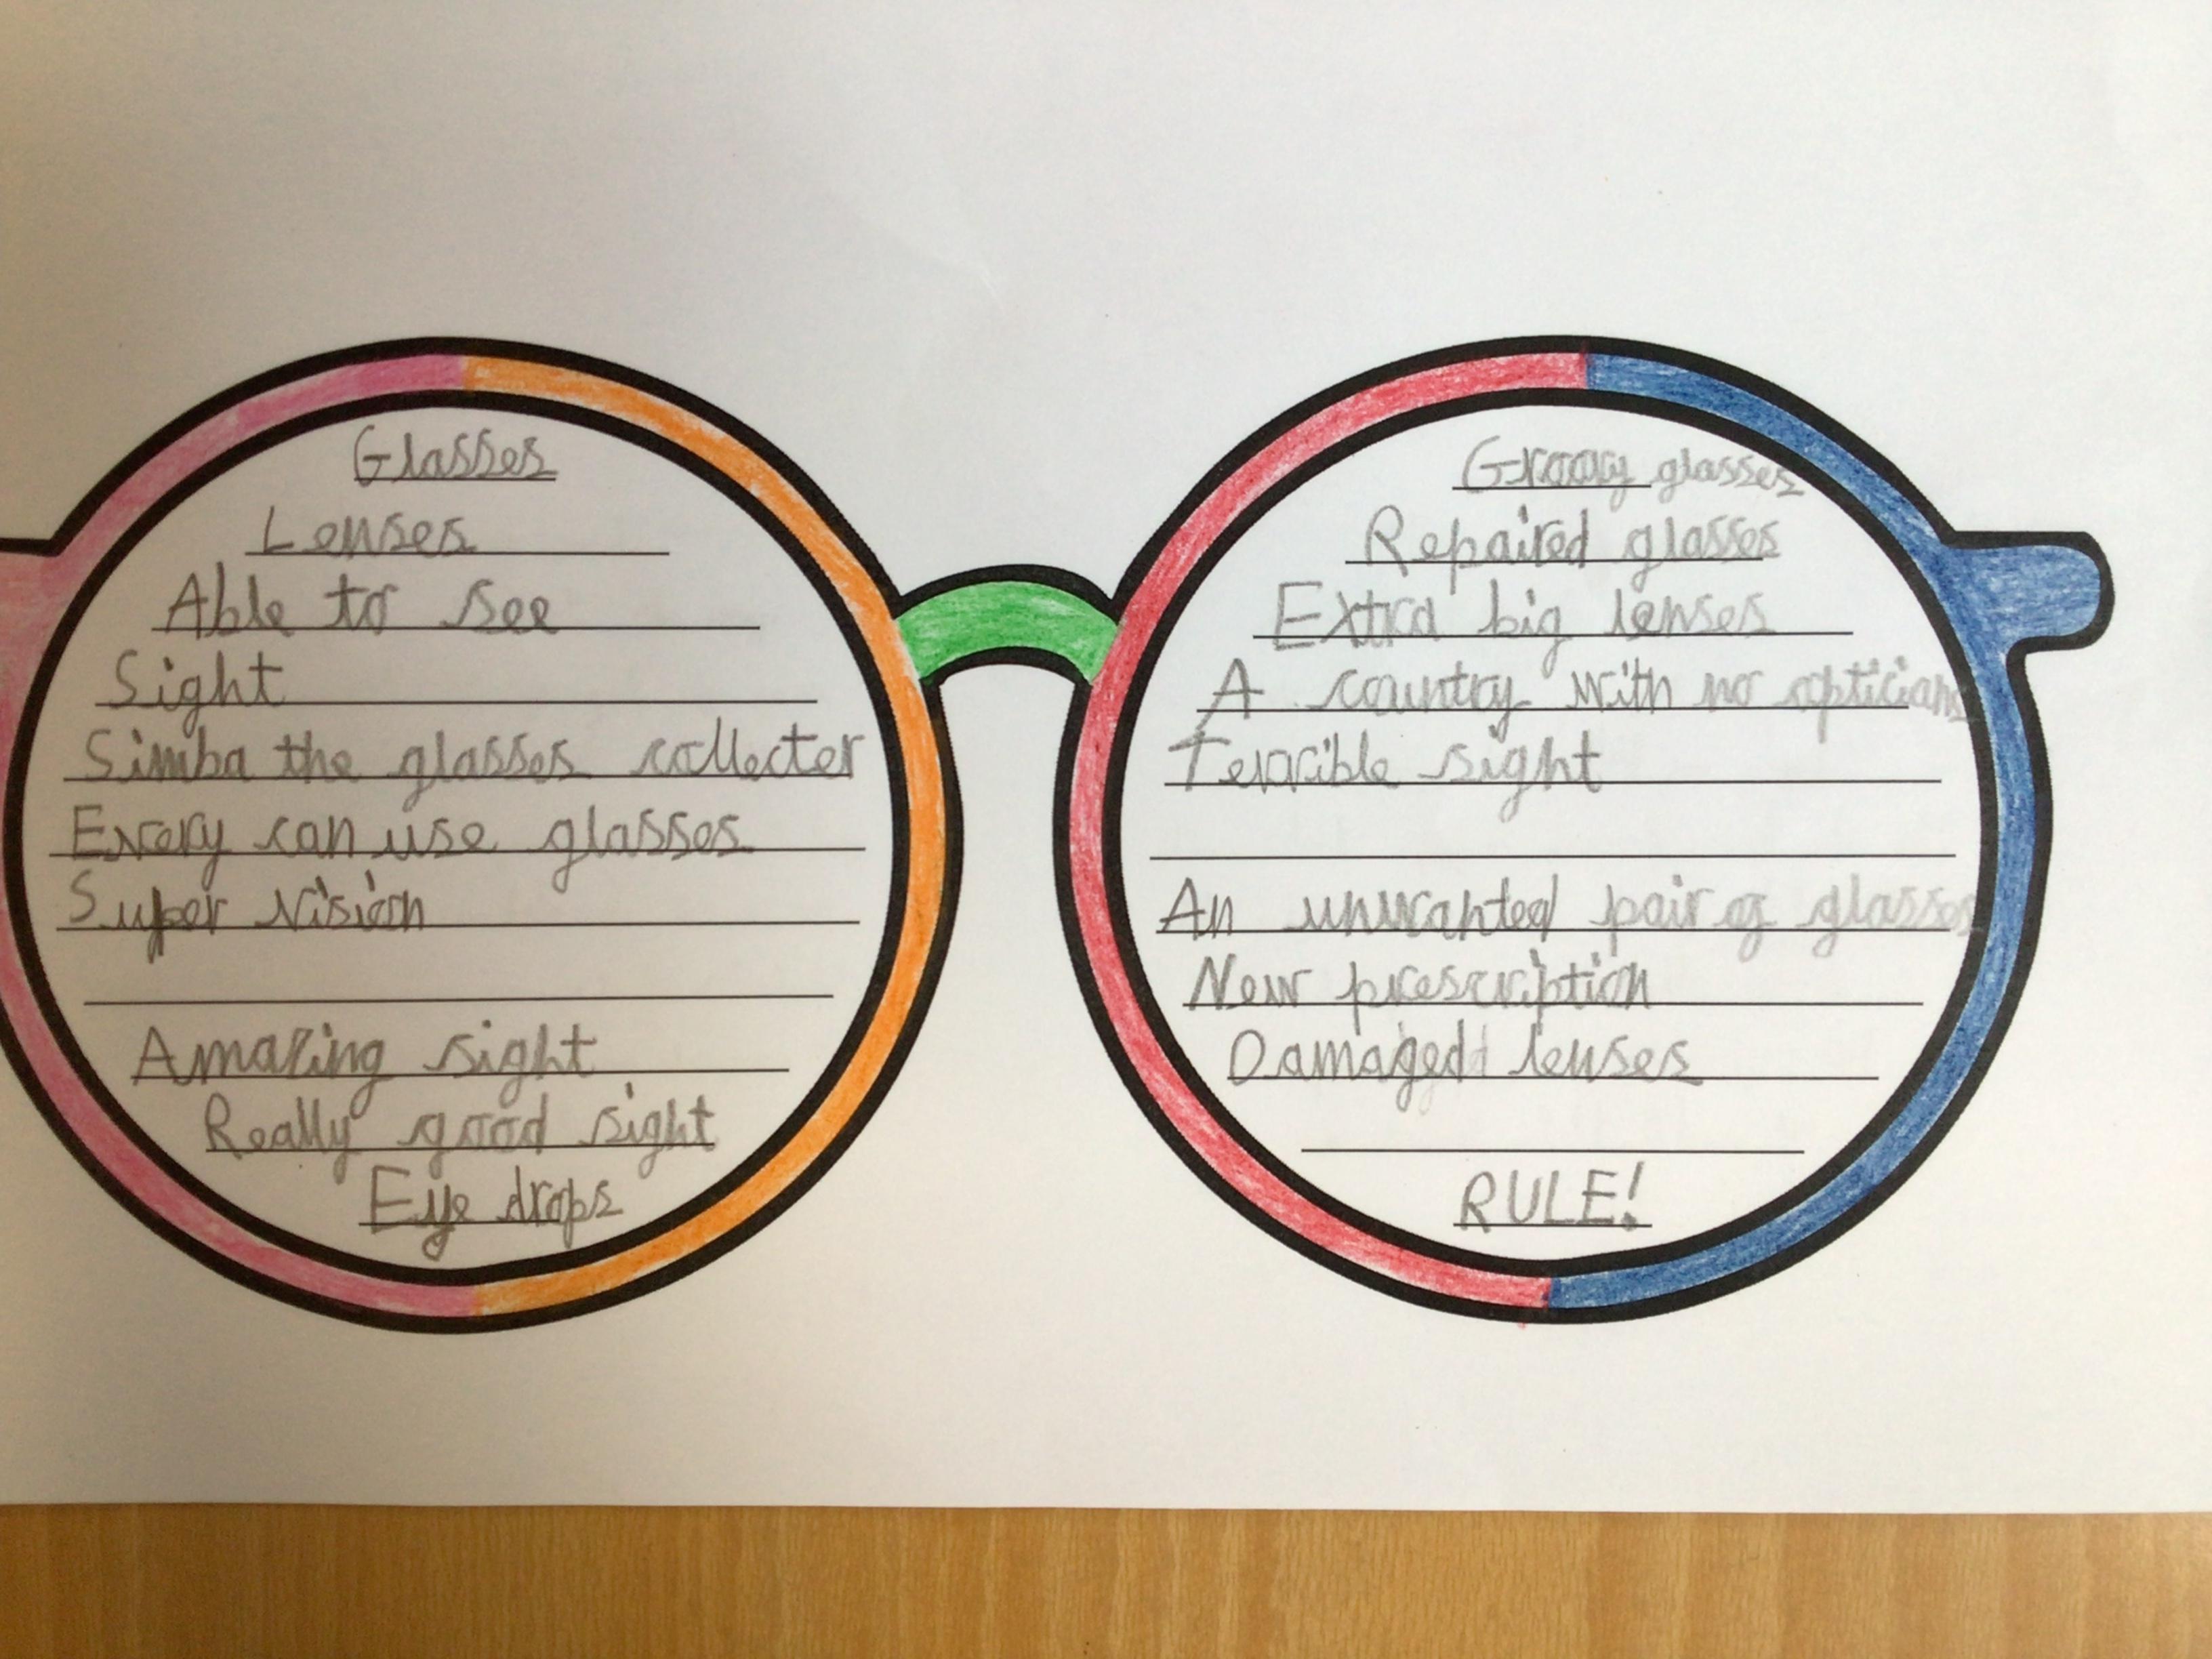 Glasses
Lenses
Able to see
Sight
Simba the glasses collecter
Every can use glasses
Super vision
Amazing sight
Really good sight
Eye drops
Groovy glasses
Repaired glasses
Extra big lenses
A country with no opticians
Terrible sight
An unwanted pair of glasses
New prescription
Damaged lenses
RULE!